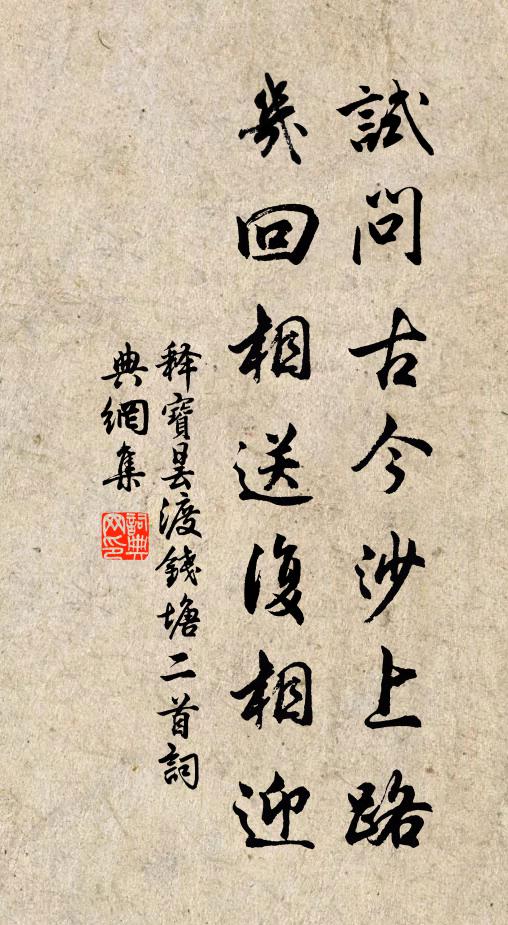 試問古今沙上路
幾回相送復相迎
釋寶曇渡錢塘二首詞
典網集
詞典
网印